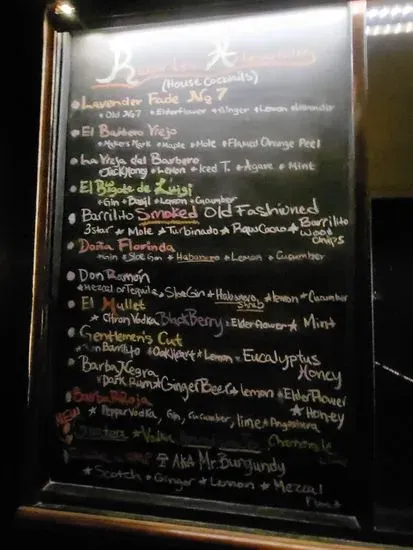 (House Cocktails)
Lavender Fade No 7
Old No7 Elderflower Ginger Lemon Lavender
El Barbero Viejo
Makers Mark Maple Mole Flamed Orange Peel
La Vieja del Barbero
Jack Honey Lemon Iced T. Agave Mint
El Bigote de Luigi
Gin Basil Lemon Cucumber
Barrilito Smoked Old Fashioned
3star Mole Turbinado Barrilito Wood Chips
Doña Florinda
Gin Sloe Gin Habanero Lemon Cucumber
Don Ramón
Mezcal or Tequila, Sloe Gin Habanero Shrub Lemon Cucumber
El Mullet
Citron Vodka BlackBerry Elderflower Mint
Gentlemen's Cut
Ron Barrilito Oakheart Lemon Eucalyptus Honey
Barba Negra
Dark Rum Ginger Beer Lemon ElderFlower Honey
Barba Roja
Pepper Vodka, Gin, Cucumber, lime Angostura
NEW
Vodka
AKA Mr. Burgundy
Scotch Ginger Lemon Mezcal